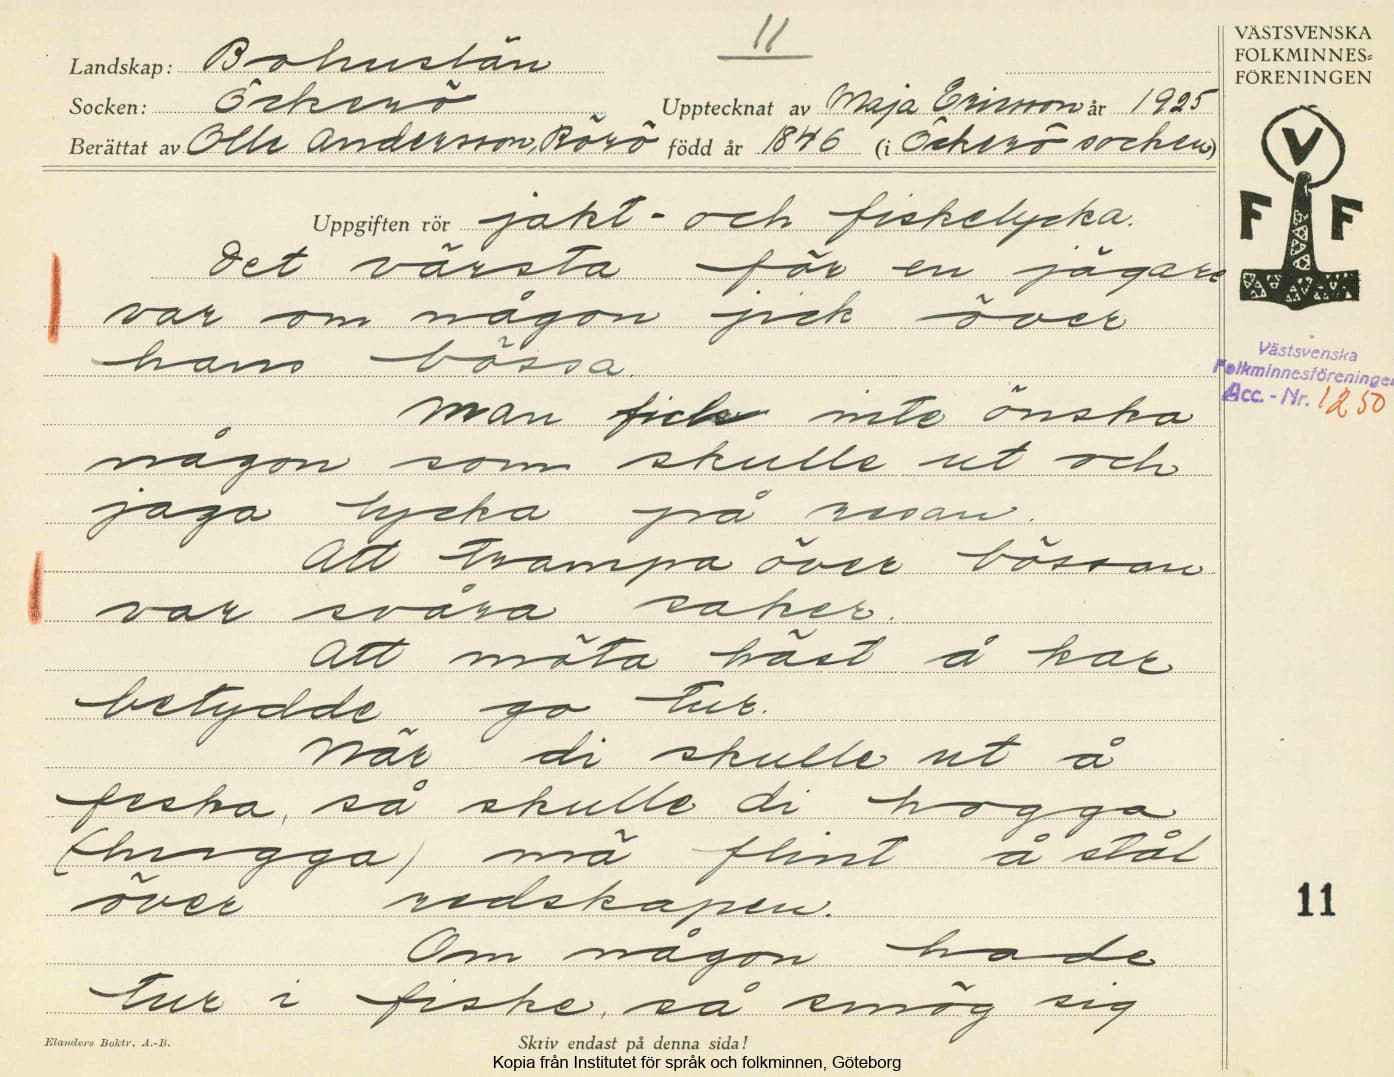 11
Landskap: Bohuslän
Socken: Öckerö
Upptecknat av Maja Ericsson år 1925
Berättat av Olle Andersson, Rörö född år 1846 (i Öckerö socken)
Uppgiften rör jakt- och fiskelycka.
Det värsta för en jägare
var om någon jick över
hans bössa.
Man fick inte önska
någon som skulle ut och
jaga lycka på resan.
Att trampa över bössan
var svåra saker.
Att möta häst å kar
betydde go tur.
När di skulle ut å
feska, så skulle di hogga
(hurgga) mä flint å stål
över redskapen.
Om någon hade
tur i fiske, så smög sig
Elanders Boktr. A.-B.
Skriv endast på denna sida!
Kopia från Institutet för språk och folkminnen, Göteborg
VÄSTSVENSKA
FOLKMINNES=
FÖRENINGEN
V
F F
Västsvenska
Folkminnesföreningen
Acc. - Nr. 1250
11